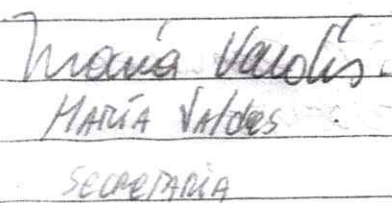 María Valdés.
MARÍA VAldes.
SECRETARIA